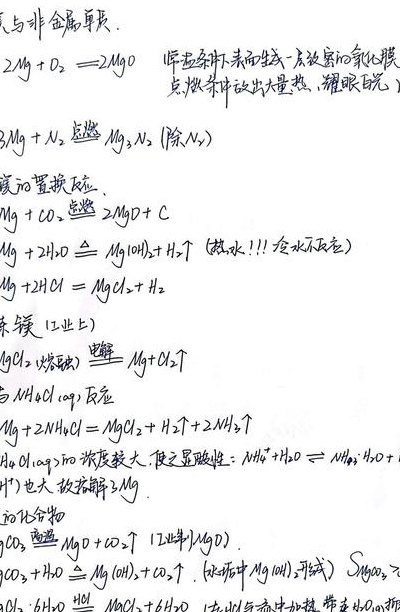 与非金属单质.
2Mg + O₂ = 2MgO 常温条件下表面生成一层致密的氧化膜
点燃条件放出大量热、耀眼白光
3Mg + N₂ 点燃 Mg₃N₂ (除N₂)
镁的置换反应.
Mg + CO₂ 点燃 2MgO + C
Mg + 2H₂O △ Mg(OH)₂ + H₂↑ (热水!!! 冷水不反应)
Mg + 2HCl = MgCl₂ + H₂
炼镁 (工业上)
MgCl₂ (熔融) 电解 Mg + Cl₂↑
与NH₄Cl(aq)反应
Mg + 2NH₄Cl = MgCl₂ + H₂↑ + 2NH₃↑
H₄Cl(aq)的浓度较大,使之显酸性: NH₄⁺ + H₂O ⇌ NH₃·H₂O +
H⁺)也大,故溶解了Mg.
的化合物
gCO₃ 高温 MgO + CO₂↑ (工业制MgO).
gCO₃ + H₂O △ Mg(OH)₂ + CO₂↑. (水垢中Mg(OH)₂形成) S MgCO₃ >
gCl₂·6H₂O HCl MgCl₂ + 6H₂O